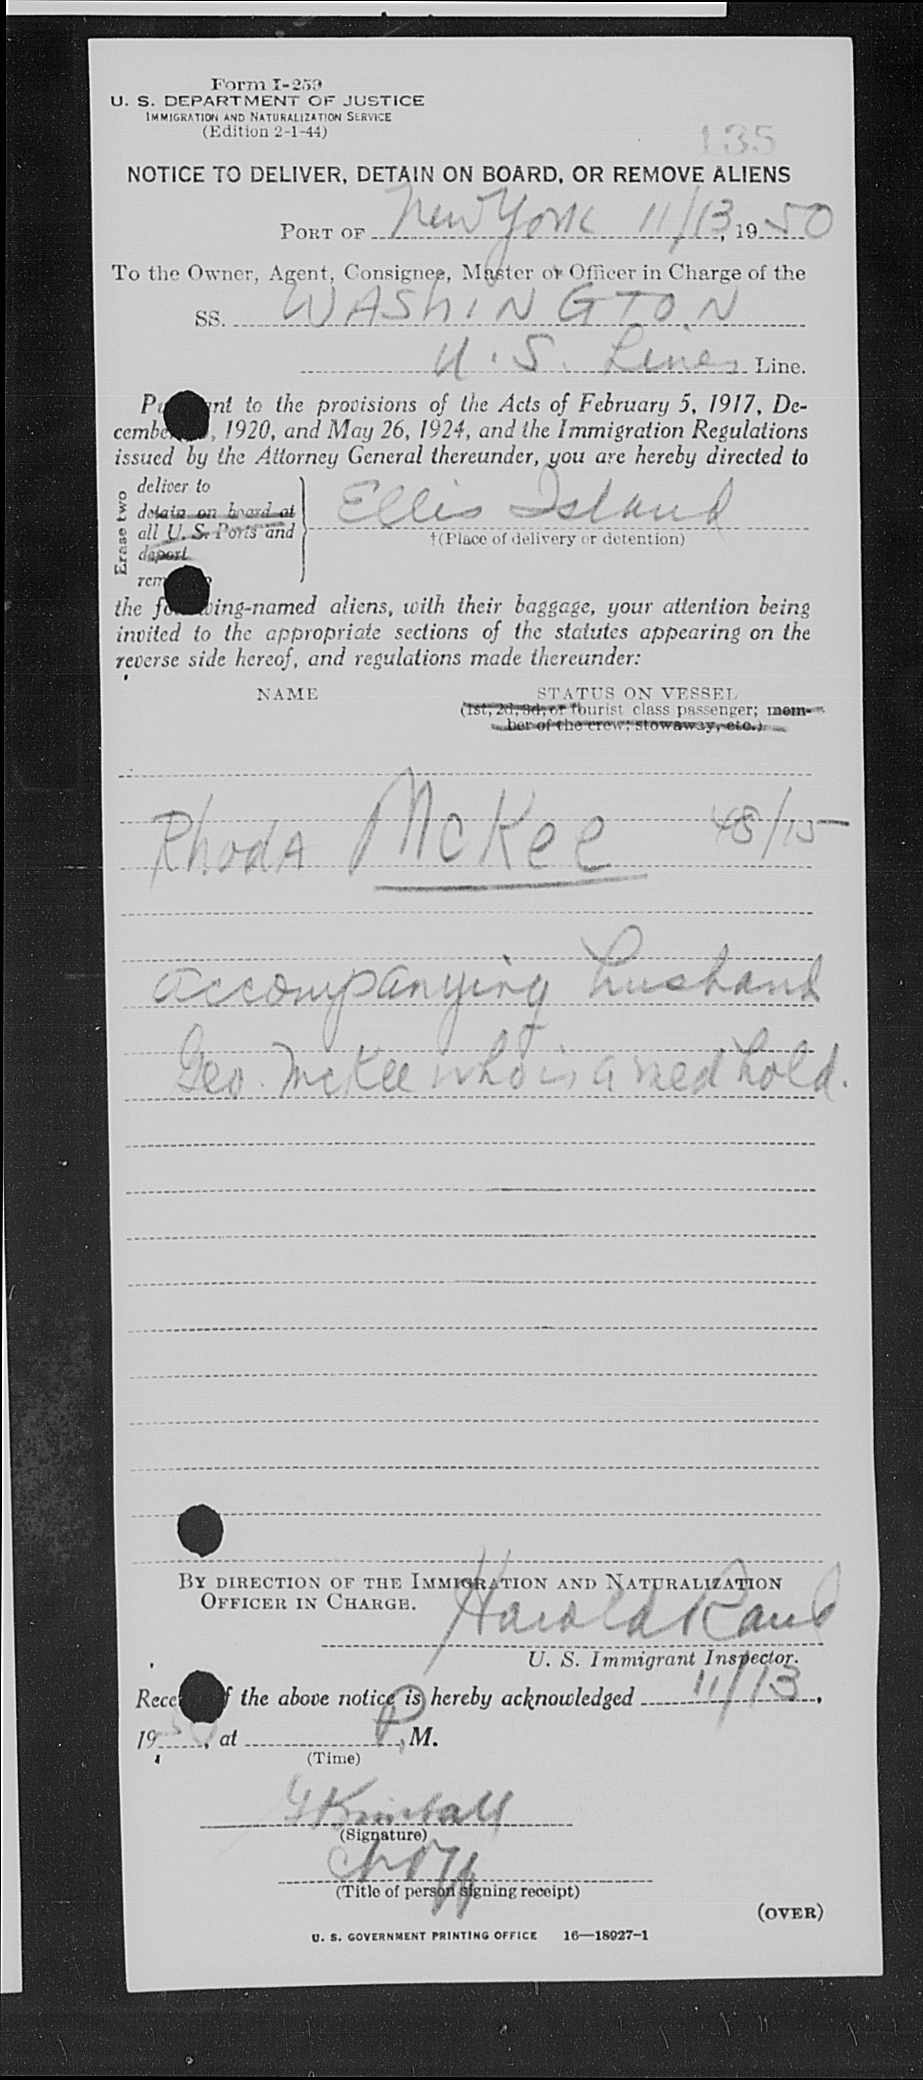 Form I-259
U. S. DEPARTMENT OF JUSTICE
IMMIGRATION AND NATURALIZATION SERVICE
(Edition 2-1-44)
135
NOTICE TO DELIVER, DETAIN ON BOARD, OR REMOVE ALIENS
PORT OF New York 11/13, 1950
To the Owner, Agent, Consignee, Master or Officer in Charge of the
SS. WASHINGTON
U.S. Lines Line.
nt to the provisions of the Acts of February 5, 1917, De-
cembe , 1920, and May 26, 1924, and the Immigration Regulations
issued by the Attorney General thereunder, you are hereby directed to
Erase two
deliver to
detain on board at
all U. S. Ports and
deport
rem
Ellis Island
†(Place of delivery or detention)
the fo wing-named aliens, with their baggage, your attention being
invited to the appropriate sections of the statutes appearing on the
reverse side hereof, and regulations made thereunder:
NAME STATUS ON VESSEL
(1st, 2d, 3d, or tourist class passenger; mem-
ber of the crew; stowaway, etc.)
Rhoda McKee 48/15
accompanying husband
Geo. McKee who is a med hold.
BY DIRECTION OF THE IMMIGRATION AND NATURALIZATION
OFFICER IN CHARGE.
Harold
U. S. Immigrant Inspector.
Rece f the above notice is hereby acknowledged 11/13,
1950, at P. M.
(Time)
G Kimball
(Signature)
(Title of person signing receipt)
(OVER)
U. S. GOVERNMENT PRINTING OFFICE 16—18927-1